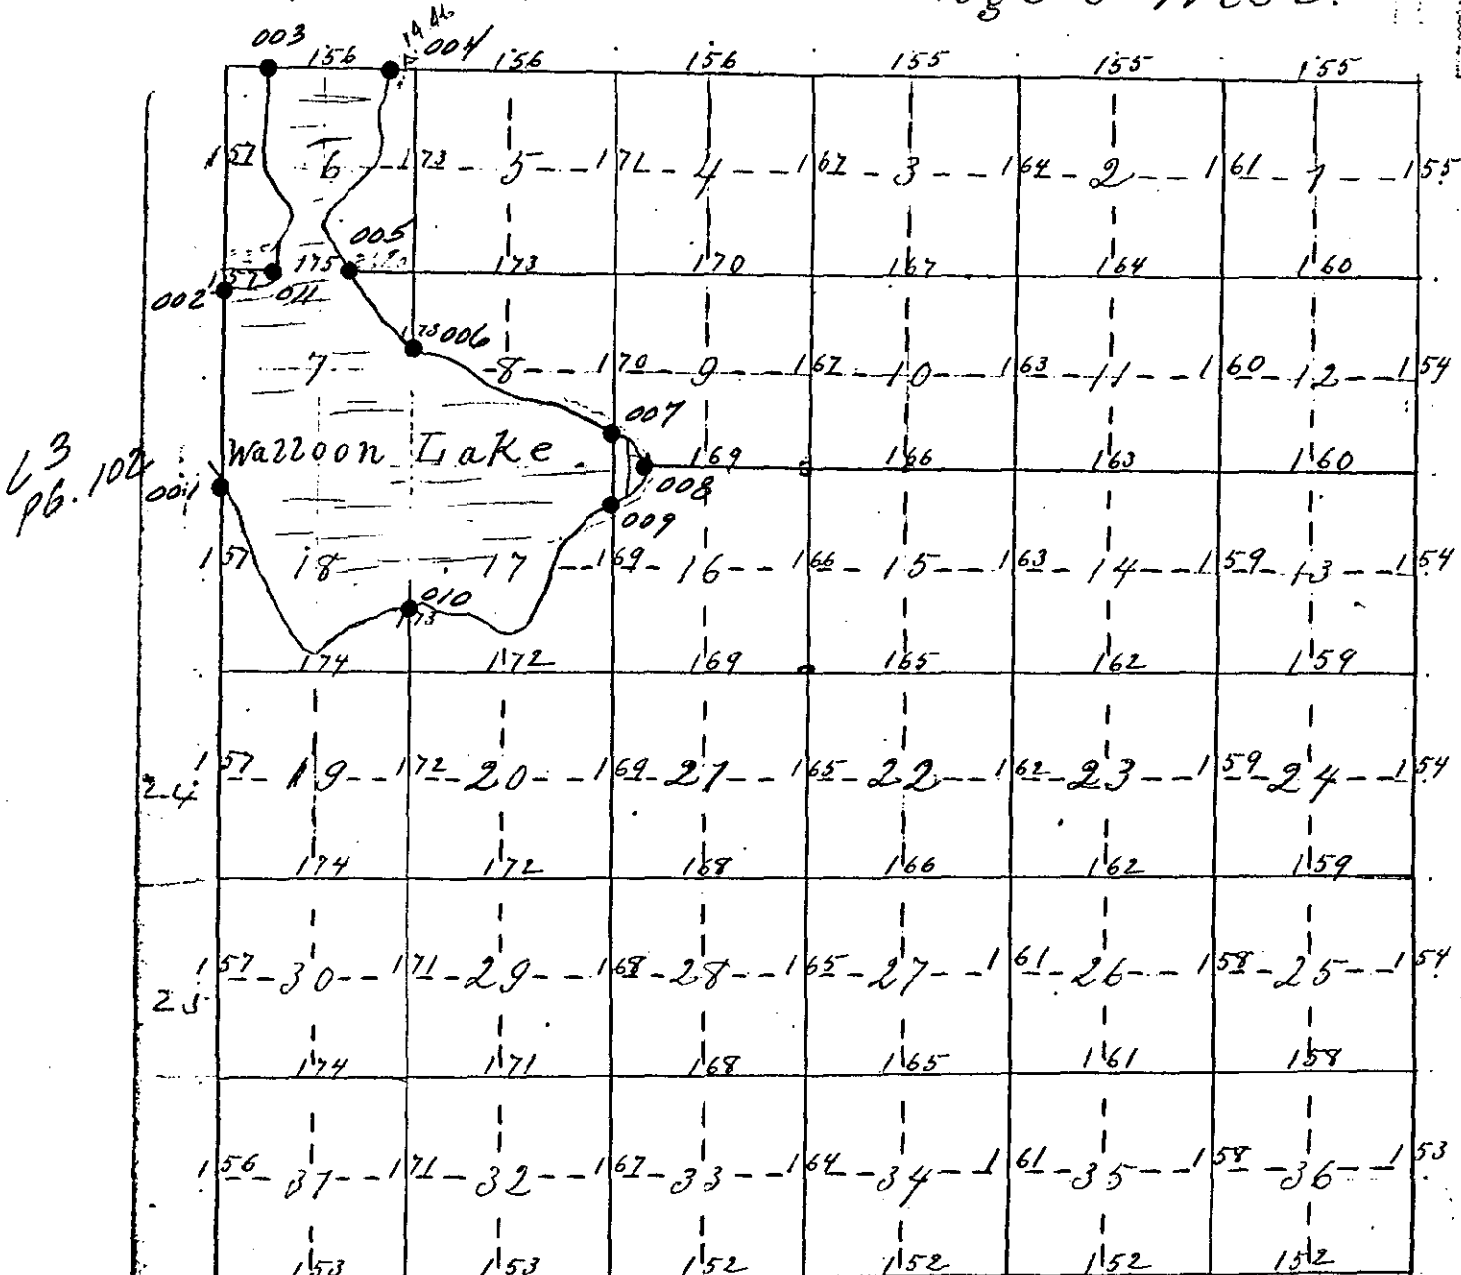 003 156 19.46 004 156 156 155 155 155
157 6 173 5 171 4 167 3 164 2 161 1 155
005
175 173 170 167 164 160
002 157 011
173 006
7 8 170 9 167 10 163 11 160 12 154
007
L3
pg. 102
Walloon Lake
169 166 163 160
001 008
009
157 18 17 169 16 166 15 163 14 159 13 154
010
173
174 172 169 165 162 159
24 157 19 172 20 169 21 165 22 162 23 159 24 154
174 172 168 166 162 159
157 30 171 29 168 28 165 27 161 26 158 25 154
174 171 168 165 161 158
156 31 171 32 167 33 164 34 161 35 158 36 153
153 153 152 152 152 152